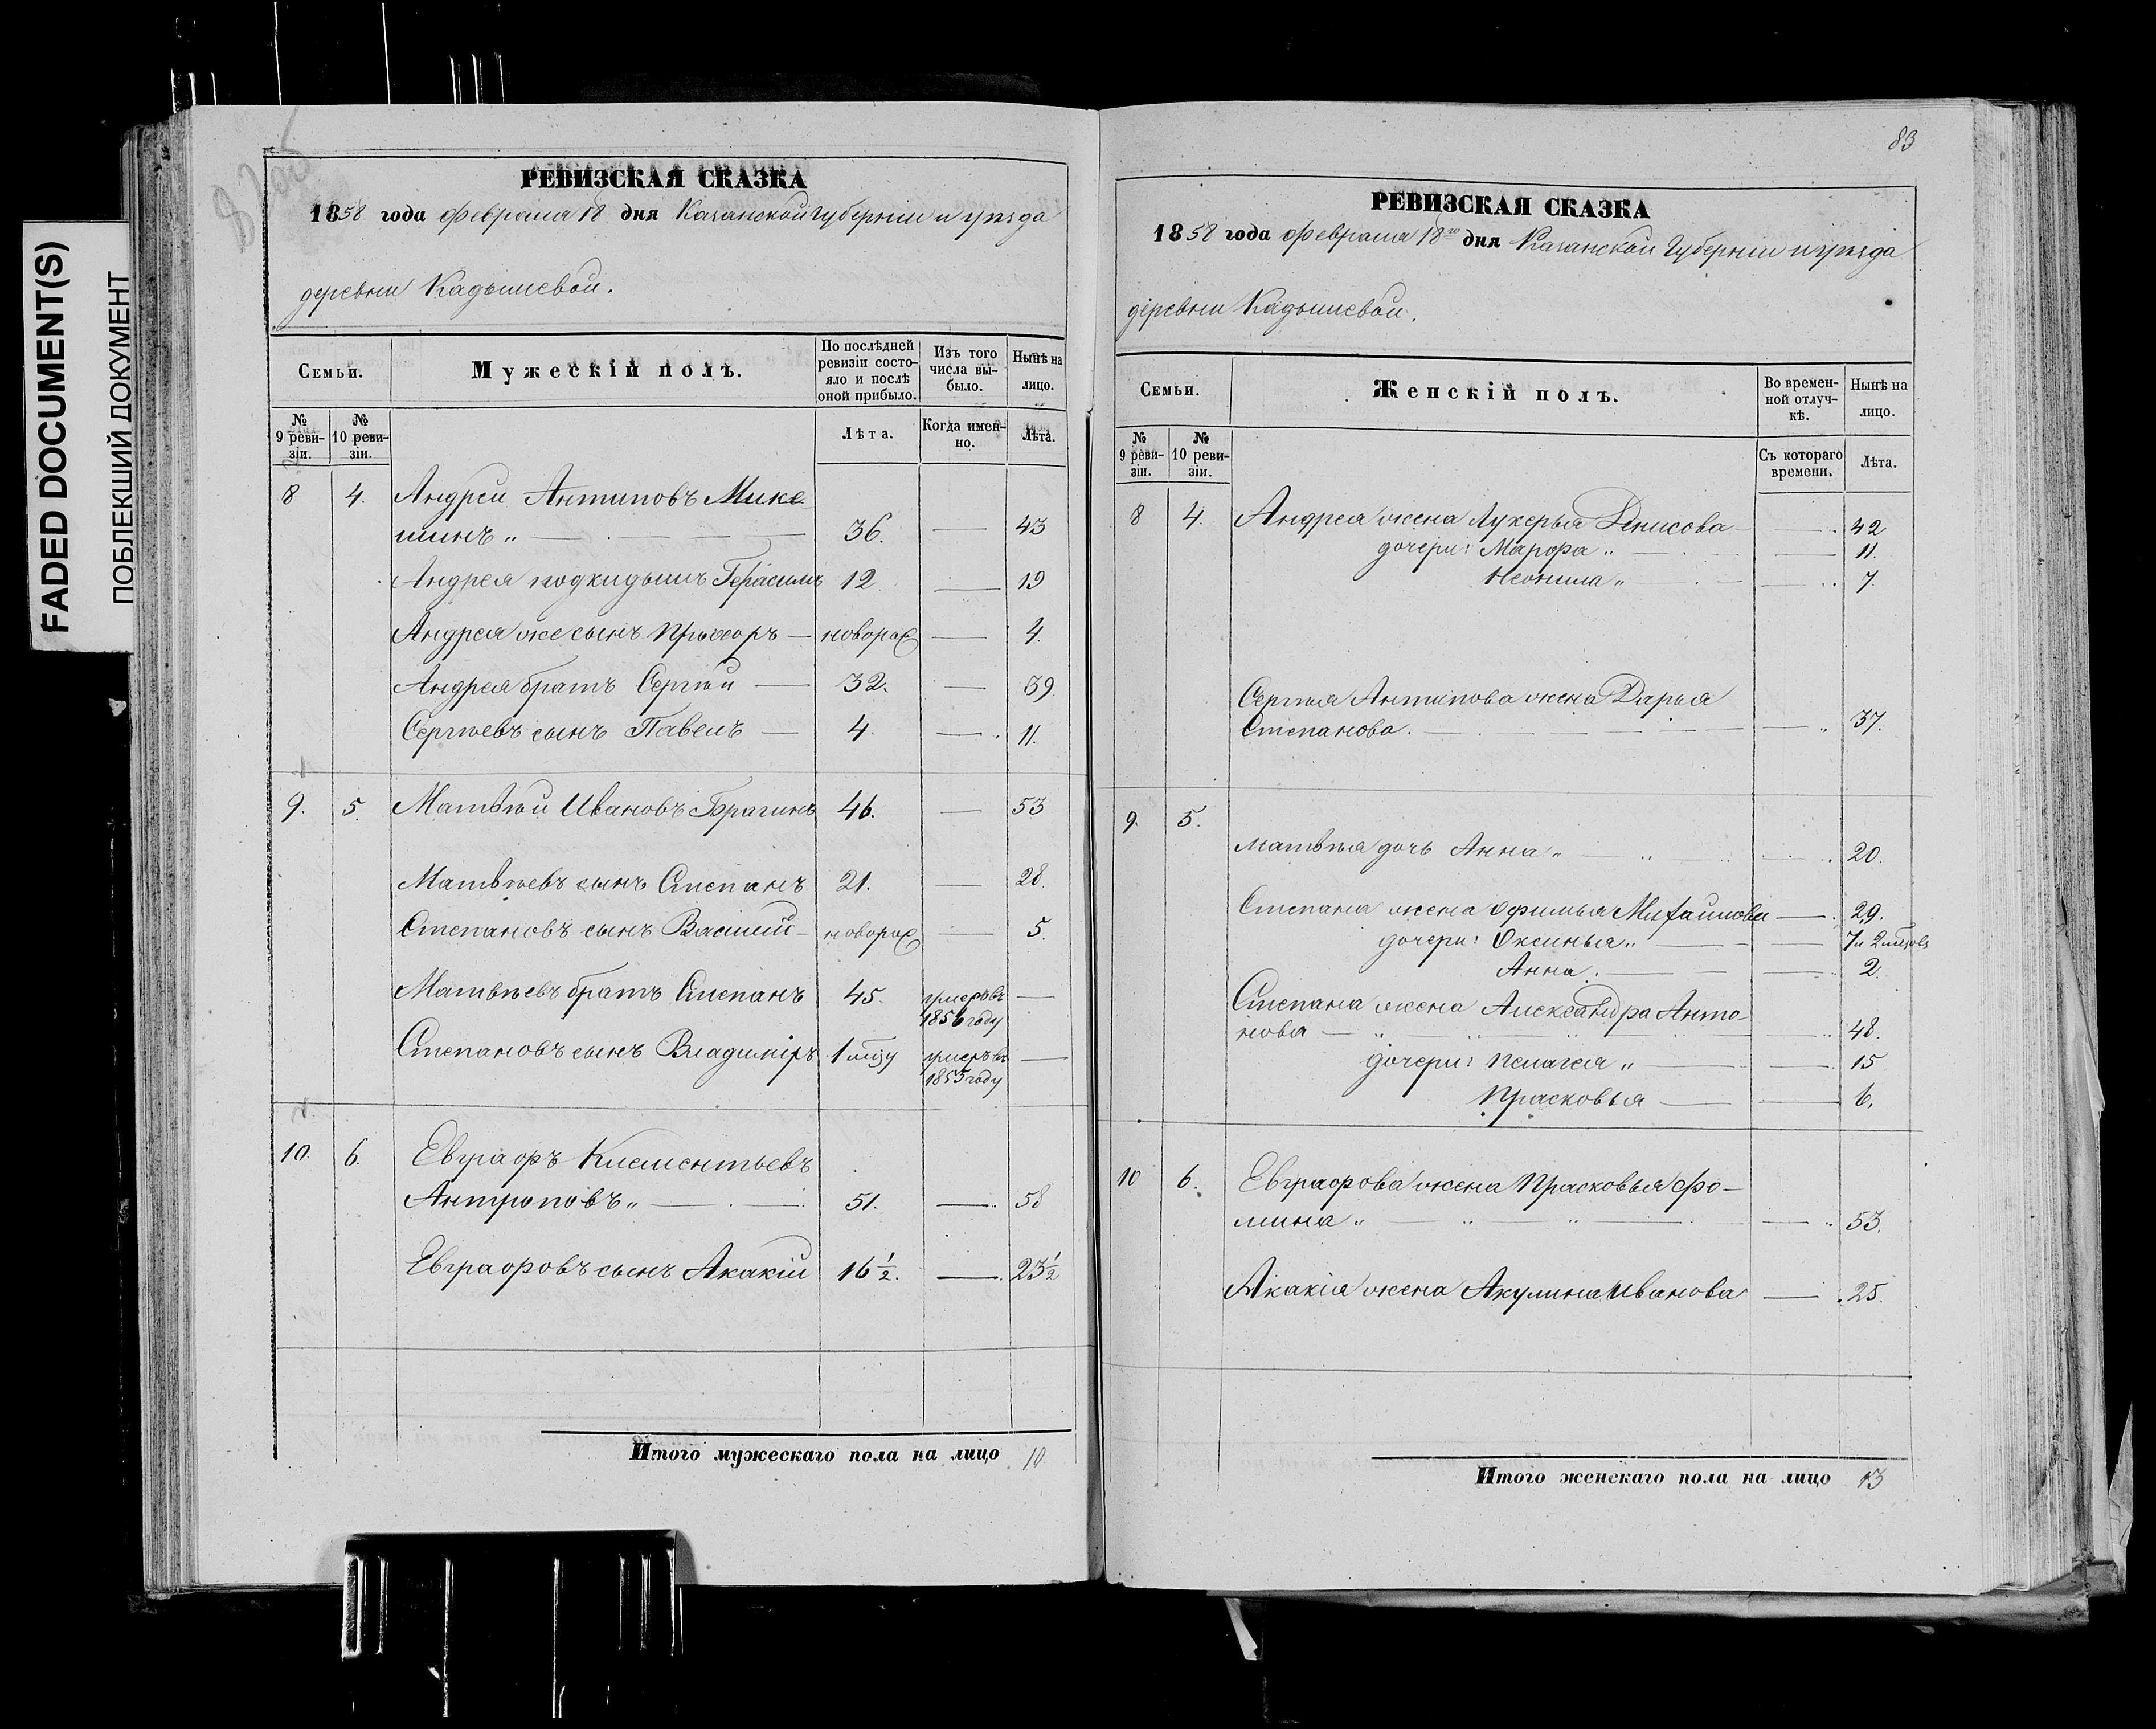 FADED DOCUMENT(S)
ПОБЛЕКШИЙ ДОКУМЕНТ
РЕВИЗСКАЯ СКАЗКА
1858 года февраля 18 дня Казанской Губерніи и уѣзда
деревни Кадышевой.
Семьи.
Мужескій полъ.
По послѣдней ревизіи состояло и послѣ оной прибыло.
Изъ того числа выбыло.
Нынѣ на лицо.
№ 9 ревизіи.
№ 10 ревизіи.
Лѣта.
Когда именно.
Лѣта.
8 4. Андрей Антиповъ Мике
шинъ „ — 36. — 43
Андрея подкидышъ Герасимъ 12 — 19
Андрея же сынъ Прохоръ — новорож — 4.
Андрея братъ Сергѣй — 32. — 39.
Сергѣевъ сынъ Павелъ — 4 — 11.
9. 5. Матвѣй Ивановъ Брагинъ 46. — 53
Матвѣевъ сынъ Степанъ 21. — 28.
Степановъ сынъ Василій — новорож — 5.
Матвѣевъ братъ Степанъ 45. умеръ въ —
1856 году
Степановъ сынъ Владимiръ 1 мѣзу умеръ въ —
1855 году
10. 6. Евграфъ Клементьевъ
Антроповъ „ — 51. — 58
Евграфовъ сынъ Акакій 16 1/2. — 23 1/2
Итого мужескаго пола на лицо 10
83
РЕВИЗСКАЯ СКАЗКА
1858 года февраля 18го дня Казанской Губерніи и уѣзда
деревни Кадышевой.
Семьи.
Женскій полъ.
Во временной отлучкѣ.
Нынѣ на лицо.
№ 9 ревизіи.
№ 10 ревизіи.
Съ котораго времени.
Лѣта.
8 4. Андрея жена Лукерья Денисова — 42
дочери: Марфа „ — 11.
Неонила „ — 7.
Сергѣя Антипова жена Дарья
Степанова. — 37.
9. 5.
Матвѣя дочь Анна „ — 20.
Степана жена Офимья Михайлова — 29.
дочери: Оксинья „ — 7 и 2 мѣсовъ
Анна. — 2.
Степана жена Александра Анто-
нова — 48.
дочери: Пелагея „ — 15
Прасковья — 6.
10 6. Евграфова жена Прасковья Фо-
мина „ — 53.
Акакія жена Акулина Иванова — 25.
Итого женскаго пола на лицо 13